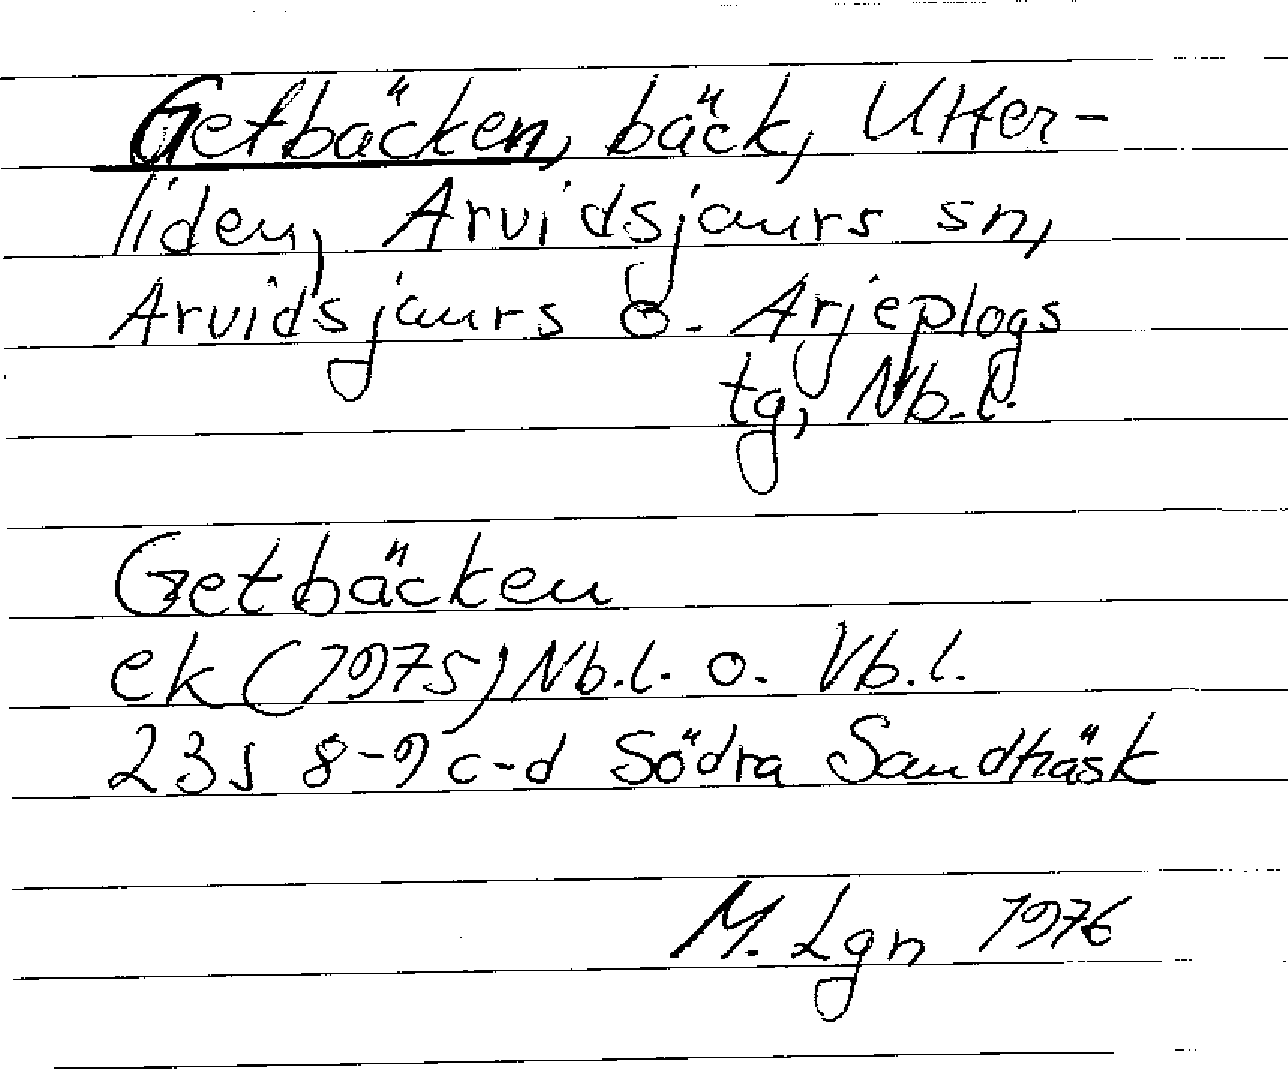 Getbäcken, bäck, Utter-
liden, Arvidsjaurs sn,
Arvidsjaurs o. Arjeplogs
tg, Nb.l.
Getbäcken
ek (1975) Nb.l. o. Vb.l.
23J 8-9 c-d Södra Sandträsk
M. Lgn 1976